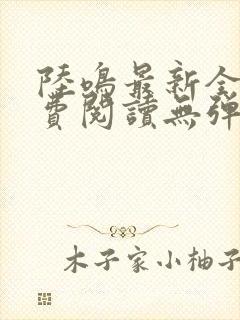 陸鳴最新全
費閱讀無彈
木子家小柚子